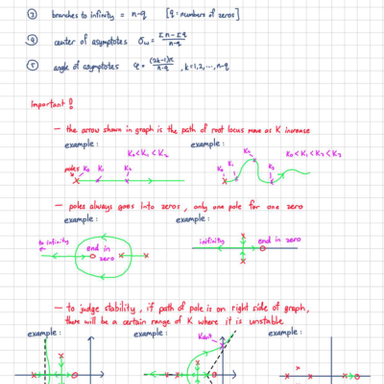 ③ branches to infinity = n-q [q = numbers of zeros]
④ center of asymptotes σω = Σn-Σq / n-q
⑤ angle of asymptotes φ = (2k-1)π / n-q , k=1,2,...,n-q
Important!
- the arrow shown in graph is the path of root locus move as K increase
example: example:
K₀<K₁<K₂
K₀<K₁<K₂<K₃
poles K₀ K₁ K₂
K₀ K₁ K₂ K₃
- poles always goes into zeros, only one pole for one zero
example: example:
to infinity end in zero
infinity end in zero
- to judge stability, if path of pole is on right side of graph,
there will be a certain range of K where it is unstable
example: example: example: